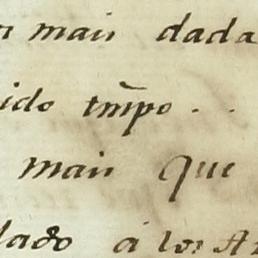 mais dada
ido tm̃po . .
mais que
lado á los